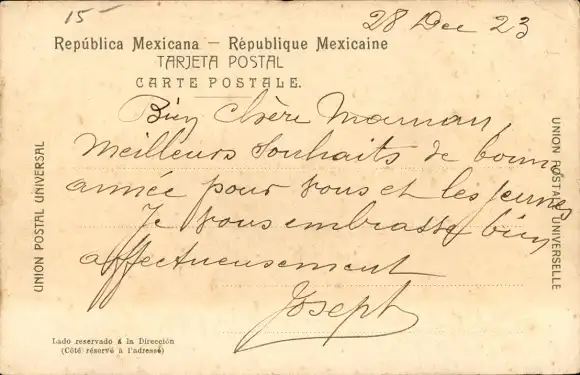 15-
28 Dec 23
República Mexicana — République Mexicaine
TARJETA POSTAL
CARTE POSTALE.
Bien Chère Maman,
Meilleurs souhaits de bonne
année pour vous et les jeunes
Je vous embrasse bien
affectueusement
Joseph
UNION POSTAL UNIVERSAL
UNION POSTALE UNIVERSELLE
Lado reservado á la Dirección
(Côté réservé à l'adresse)